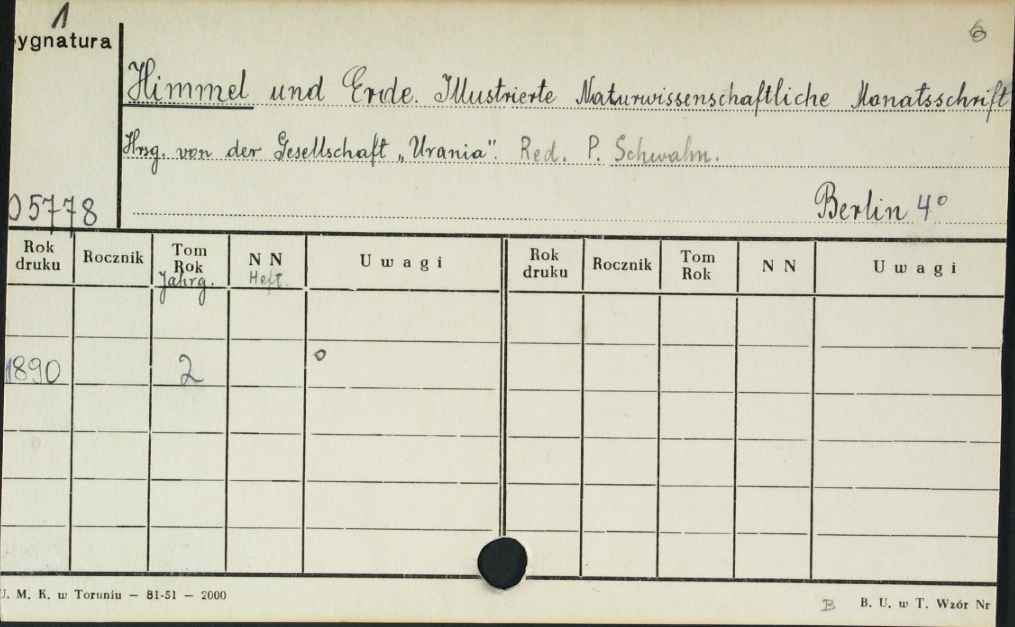 1
ygnatura
6
Himmel und Erde. Illustrierte Naturwissenschaftliche Monatsschrift
Hrsg. von der Gesellschaft „Urania". Red. P. Schwahn.
05778
Berlin 4°
Rok druku Rocznik Tom Rok Jahrg. N N Heft. Uwagi Rok druku Rocznik Tom Rok N N Uwagi
1890 2 o
J. M. K. w Toruniu — 81-51 — 2000
B B. U. w T. Wzór Nr